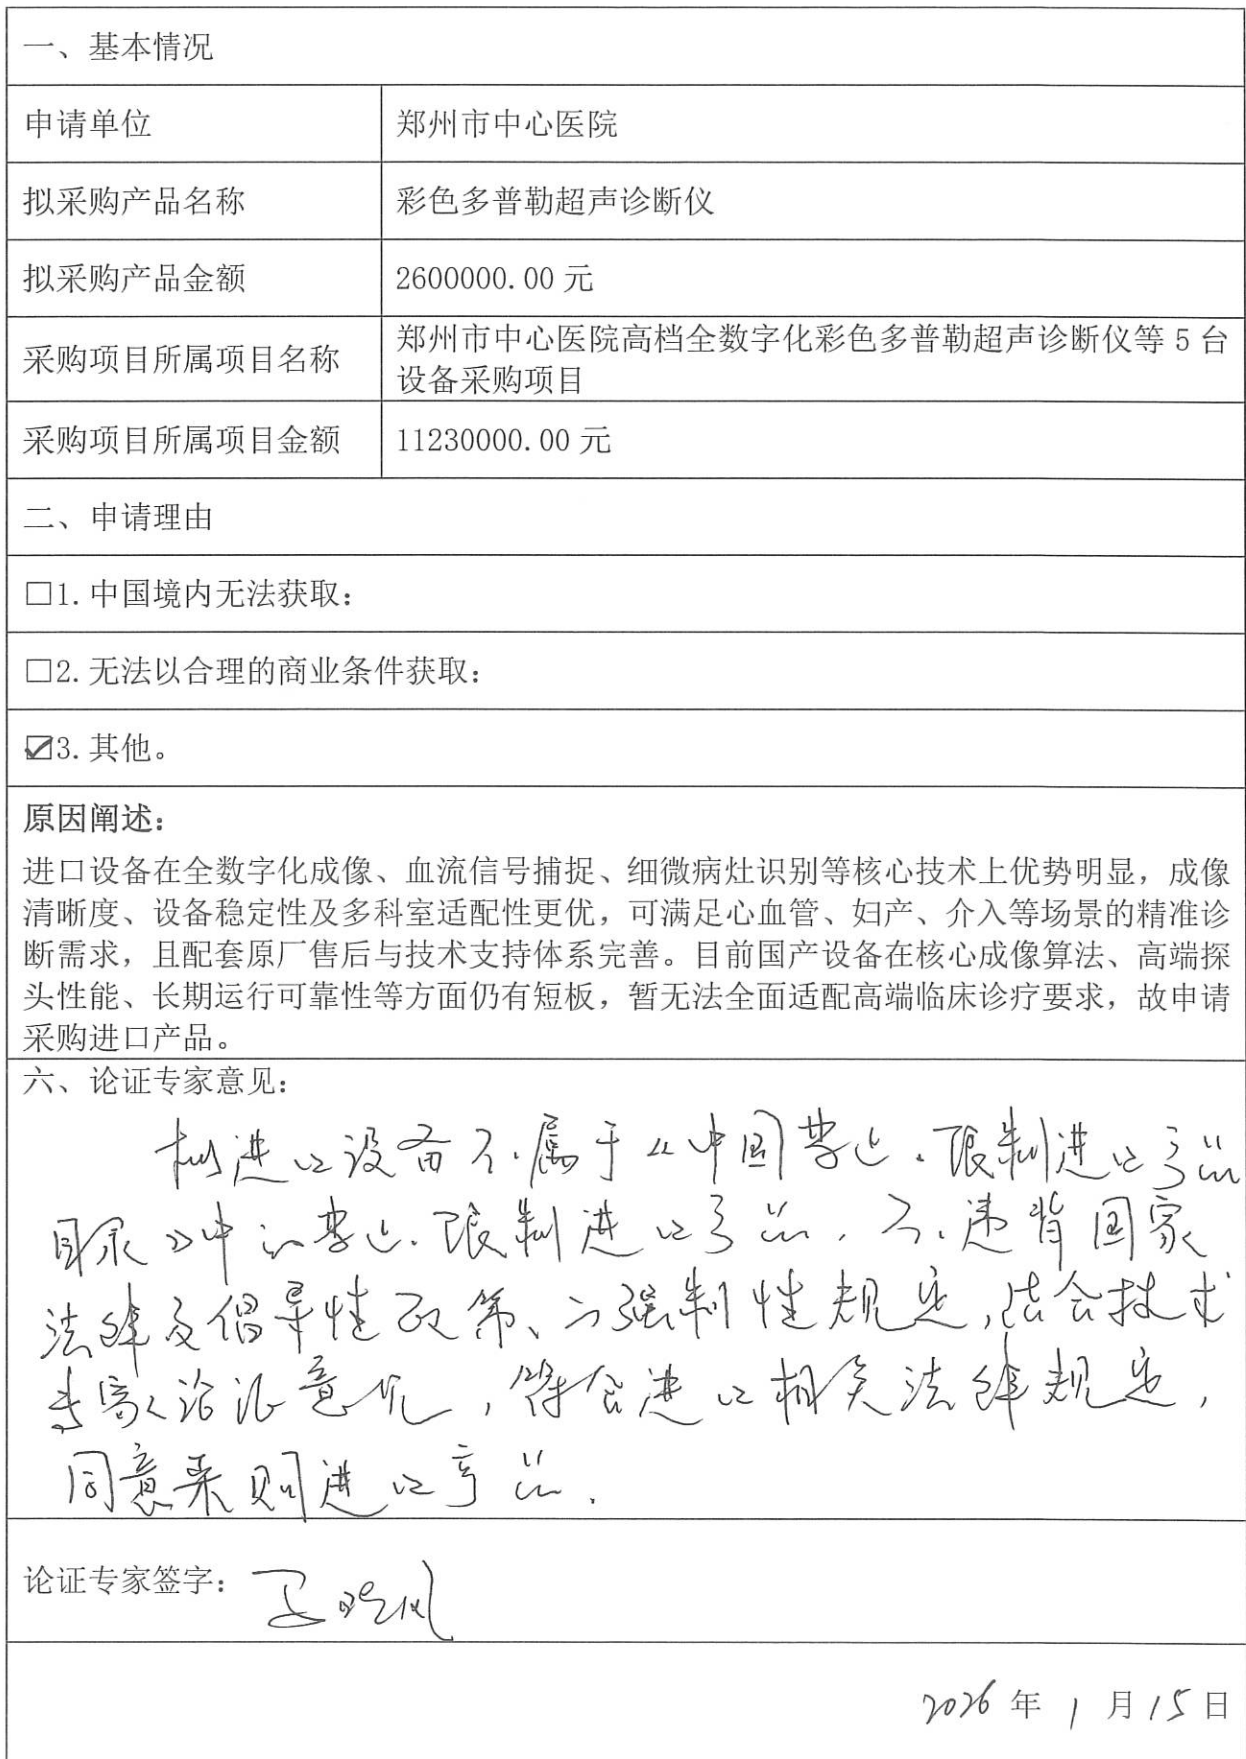 一、基本情况
申请单位 郑州市中心医院
拟采购产品名称 彩色多普勒超声诊断仪
拟采购产品金额 2600000.00 元
采购项目所属项目名称 郑州市中心医院高档全数字化彩色多普勒超声诊断仪等 5 台
设备采购项目
采购项目所属项目金额 11230000.00 元
二、申请理由
□1.中国境内无法获取：
□2.无法以合理的商业条件获取：
☑3.其他。
原因阐述：
进口设备在全数字化成像、血流信号捕捉、细微病灶识别等核心技术上优势明显，成像
清晰度、设备稳定性及多科室适配性更优，可满足心血管、妇产、介入等场景的精准诊
断需求，且配套原厂售后与技术支持体系完善。目前国产设备在核心成像算法、高端探
头性能、长期运行可靠性等方面仍有短板，暂无法全面适配高端临床诊疗要求，故申请
采购进口产品。
六、论证专家意见：
拟进口设备不属于《中国禁止、限制进口产品
目录》中的禁止、限制进口产品，不违背国家
法律及倡导性政策、强制性规定，结合技术
专家论证意见，符合进口相关法律规定，
同意采购进口产品.
论证专家签字：
2026 年 1 月 15 日